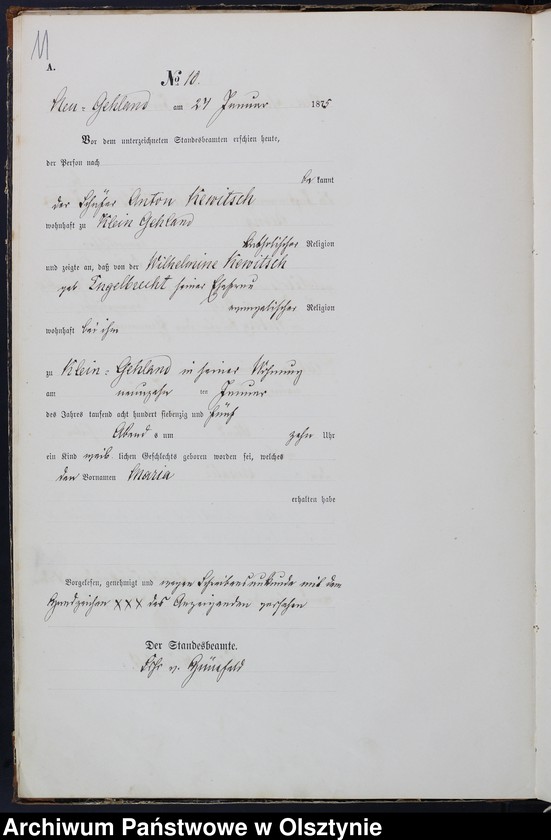 11
A.
No 10.
Neu-Gehland am 24 Januar 1875
Vor dem unterzeichneten Standesbeamten erschien heute,
der Person nach
bekannt
der Schäfer Anton Kewitsch
wohnhaft zu Klein Gehland
katholischer Religion
und zeigte an, daß von der Wilhelmine Kewitsch
geb Engelbrecht seiner Ehefrau
evangelischer Religion
wohnhaft bei ihm
zu Klein-Gehland in seiner Wohnung
am neunzehn ten Januar
des Jahres tausend acht hundert siebenzig und fünf
Abends um zehn Uhr
ein Kind weiblichen Geschlechts geboren worden sei, welches
den Vornamen Maria
erhalten habe
Vorgelesen, genehmigt und wegen Schreibensunkunde mit dem
Handzeichen XXX des Anzeigenden versehen
Der Standesbeamte.
v.
Archiwum Państwowe w Olsztynie